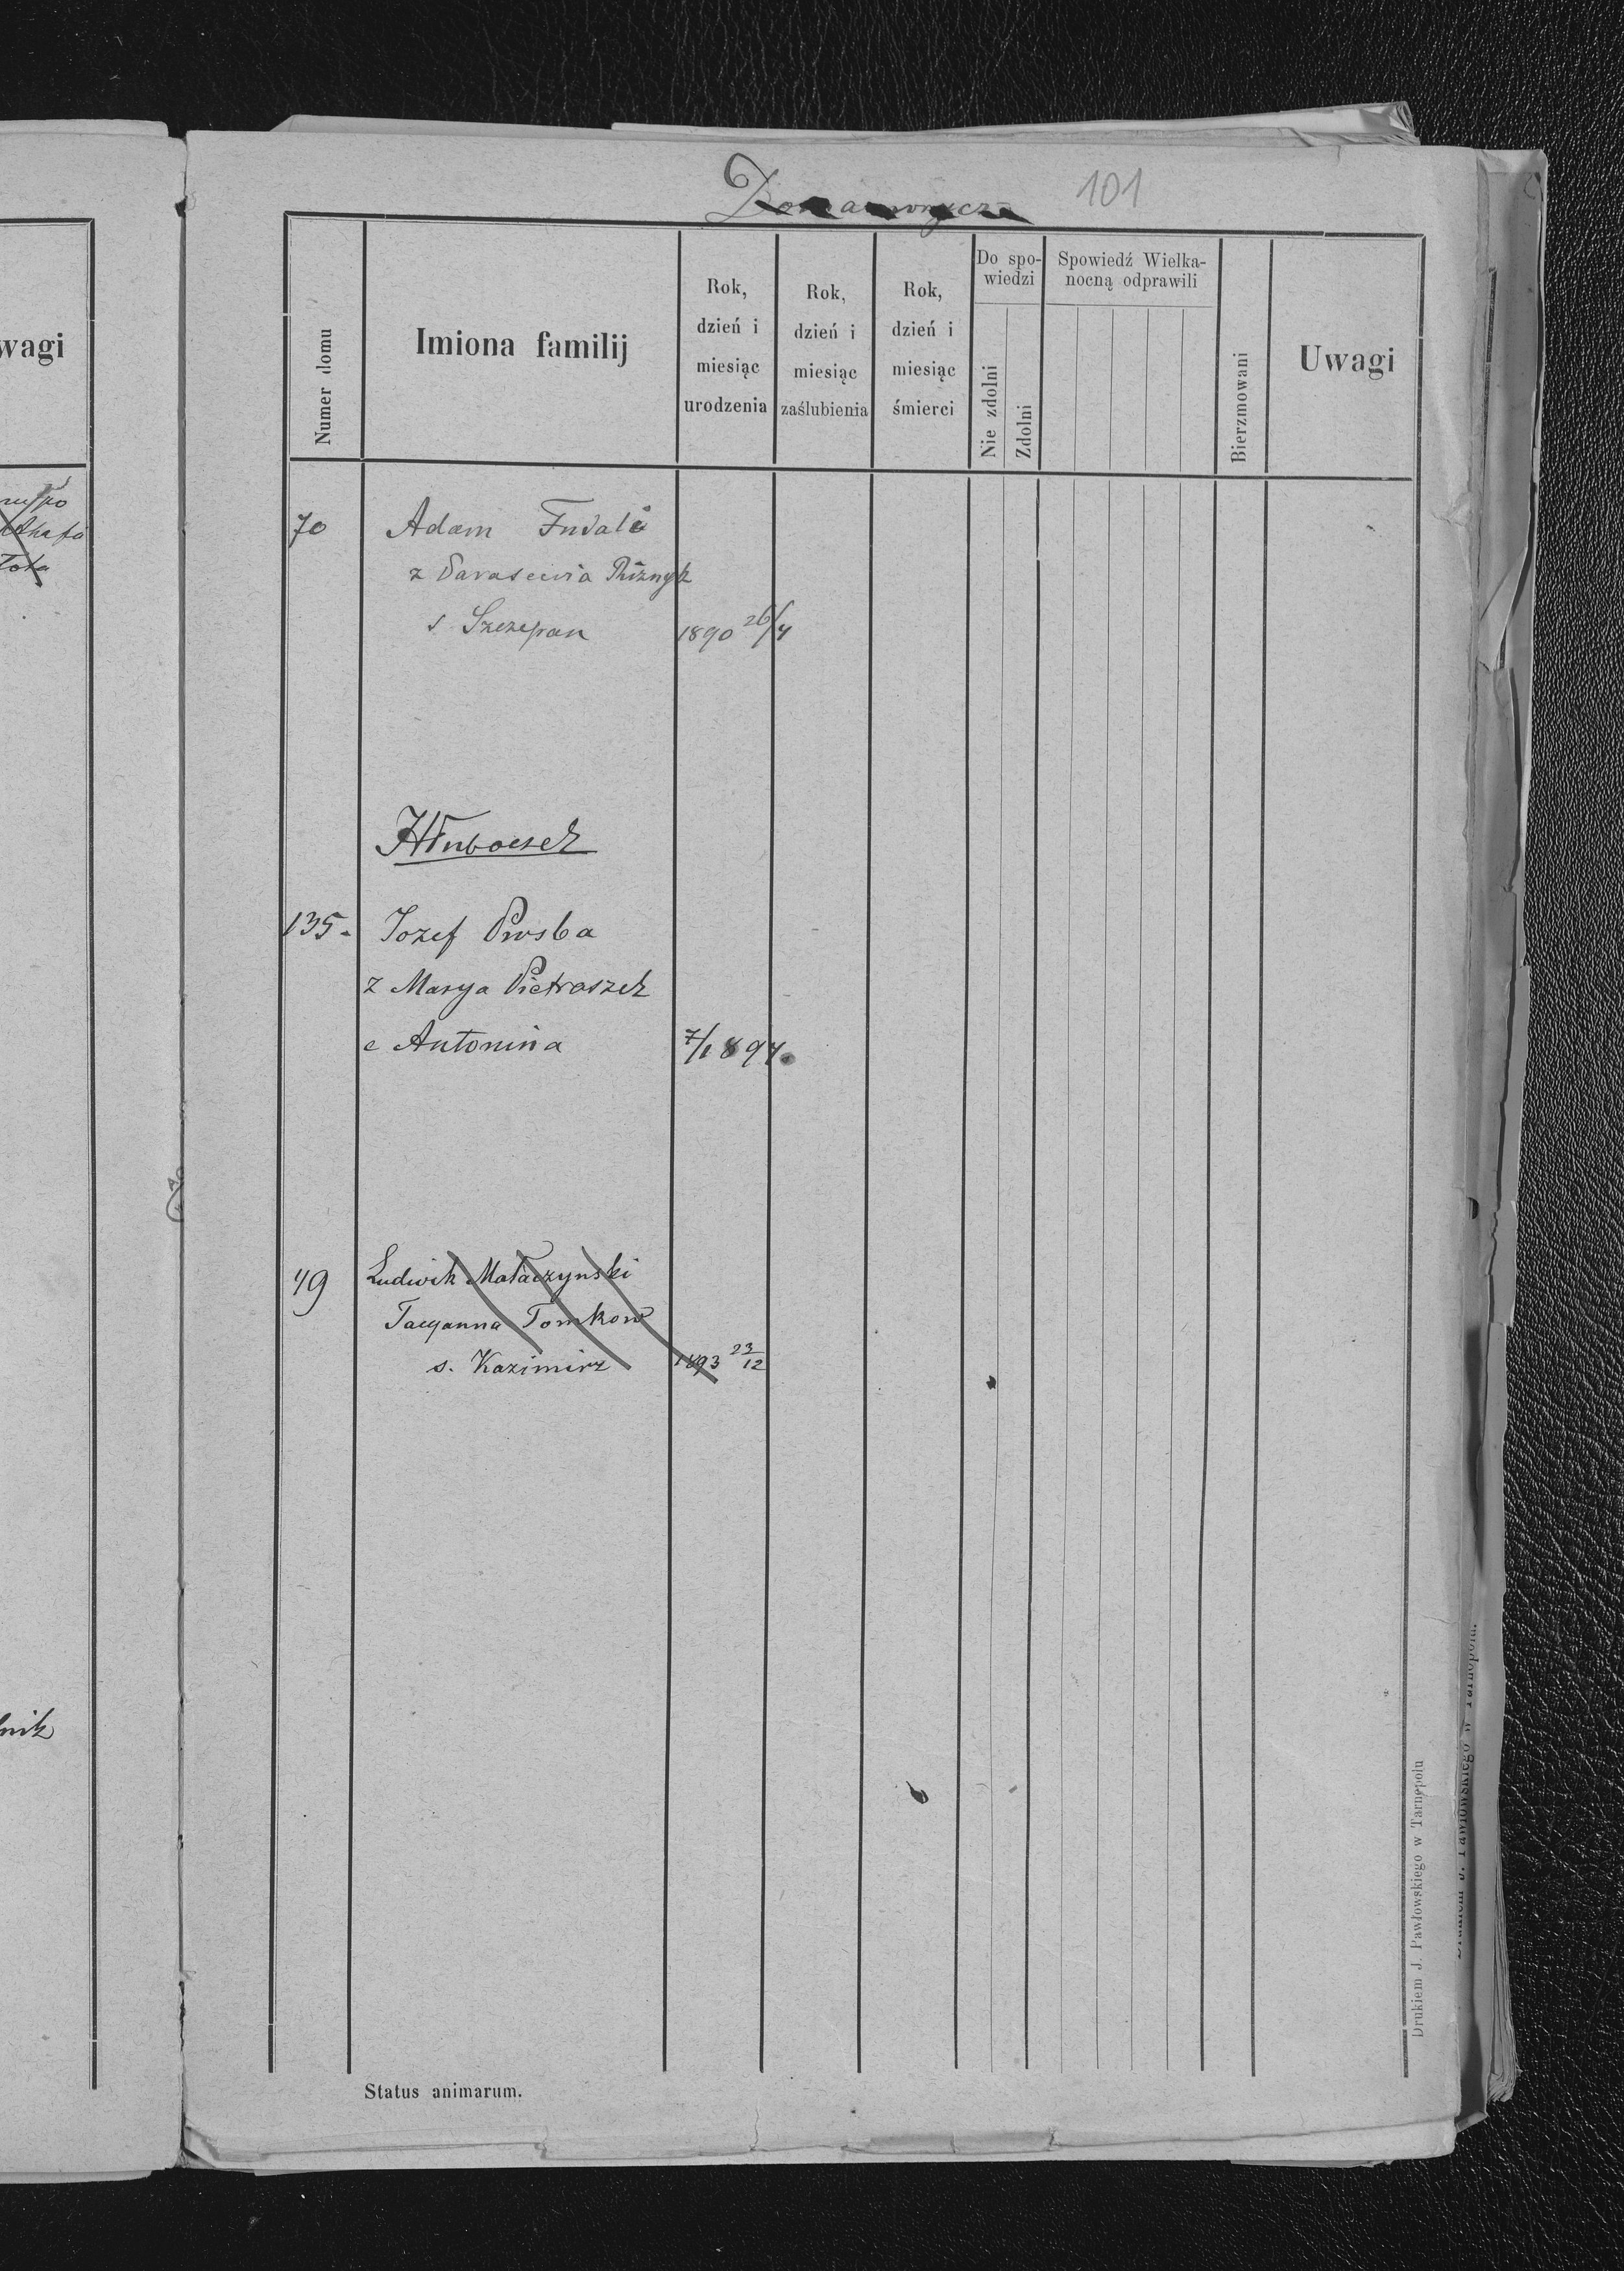 101
Numer domu
Imiona familij
Rok, dzień i miesiąc urodzenia
Rok, dzień i miesiąc zaślubienia
Rok, dzień i miesiąc śmierci
Do spo-
wiedzi
Nie zdolni
Zdolni
Spowiedź Wielka-
nocną odprawili
Bierzmowani
Uwagi
wagi
70 Adam Fudali
z Parasewia Riznyk
s Szczepan 1890 26/4
Hłuboczek
135. Jozef Prosba
z Marya Pietraszek
c Antonina 7/1 894.
49 Ludwik Mataczynski
Tacyanna Tomkow
s. Kazimirz 1893 23/12
nik
Status animarum.
Drukiem J. Pawłowskiego w Tarnopolu